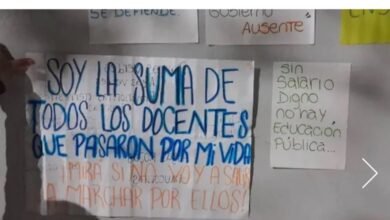 SE DEFIENDE.
Gobierno
AUSENTE
SOY LA SUMA DE
TODOS LOS DOCENTES
QUE PASARON POR MI VIDA
¡MIRA SI NO VOY A SALIR
A MARCHAR POR ELLOS!
sin
Salario
Digno
no hay
Educación
Pública...